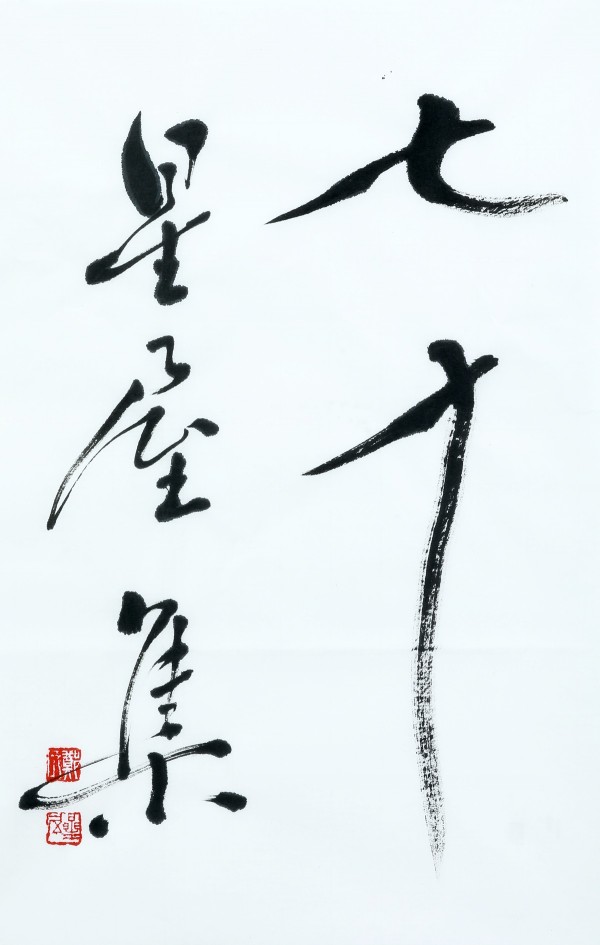 七十
星屋集